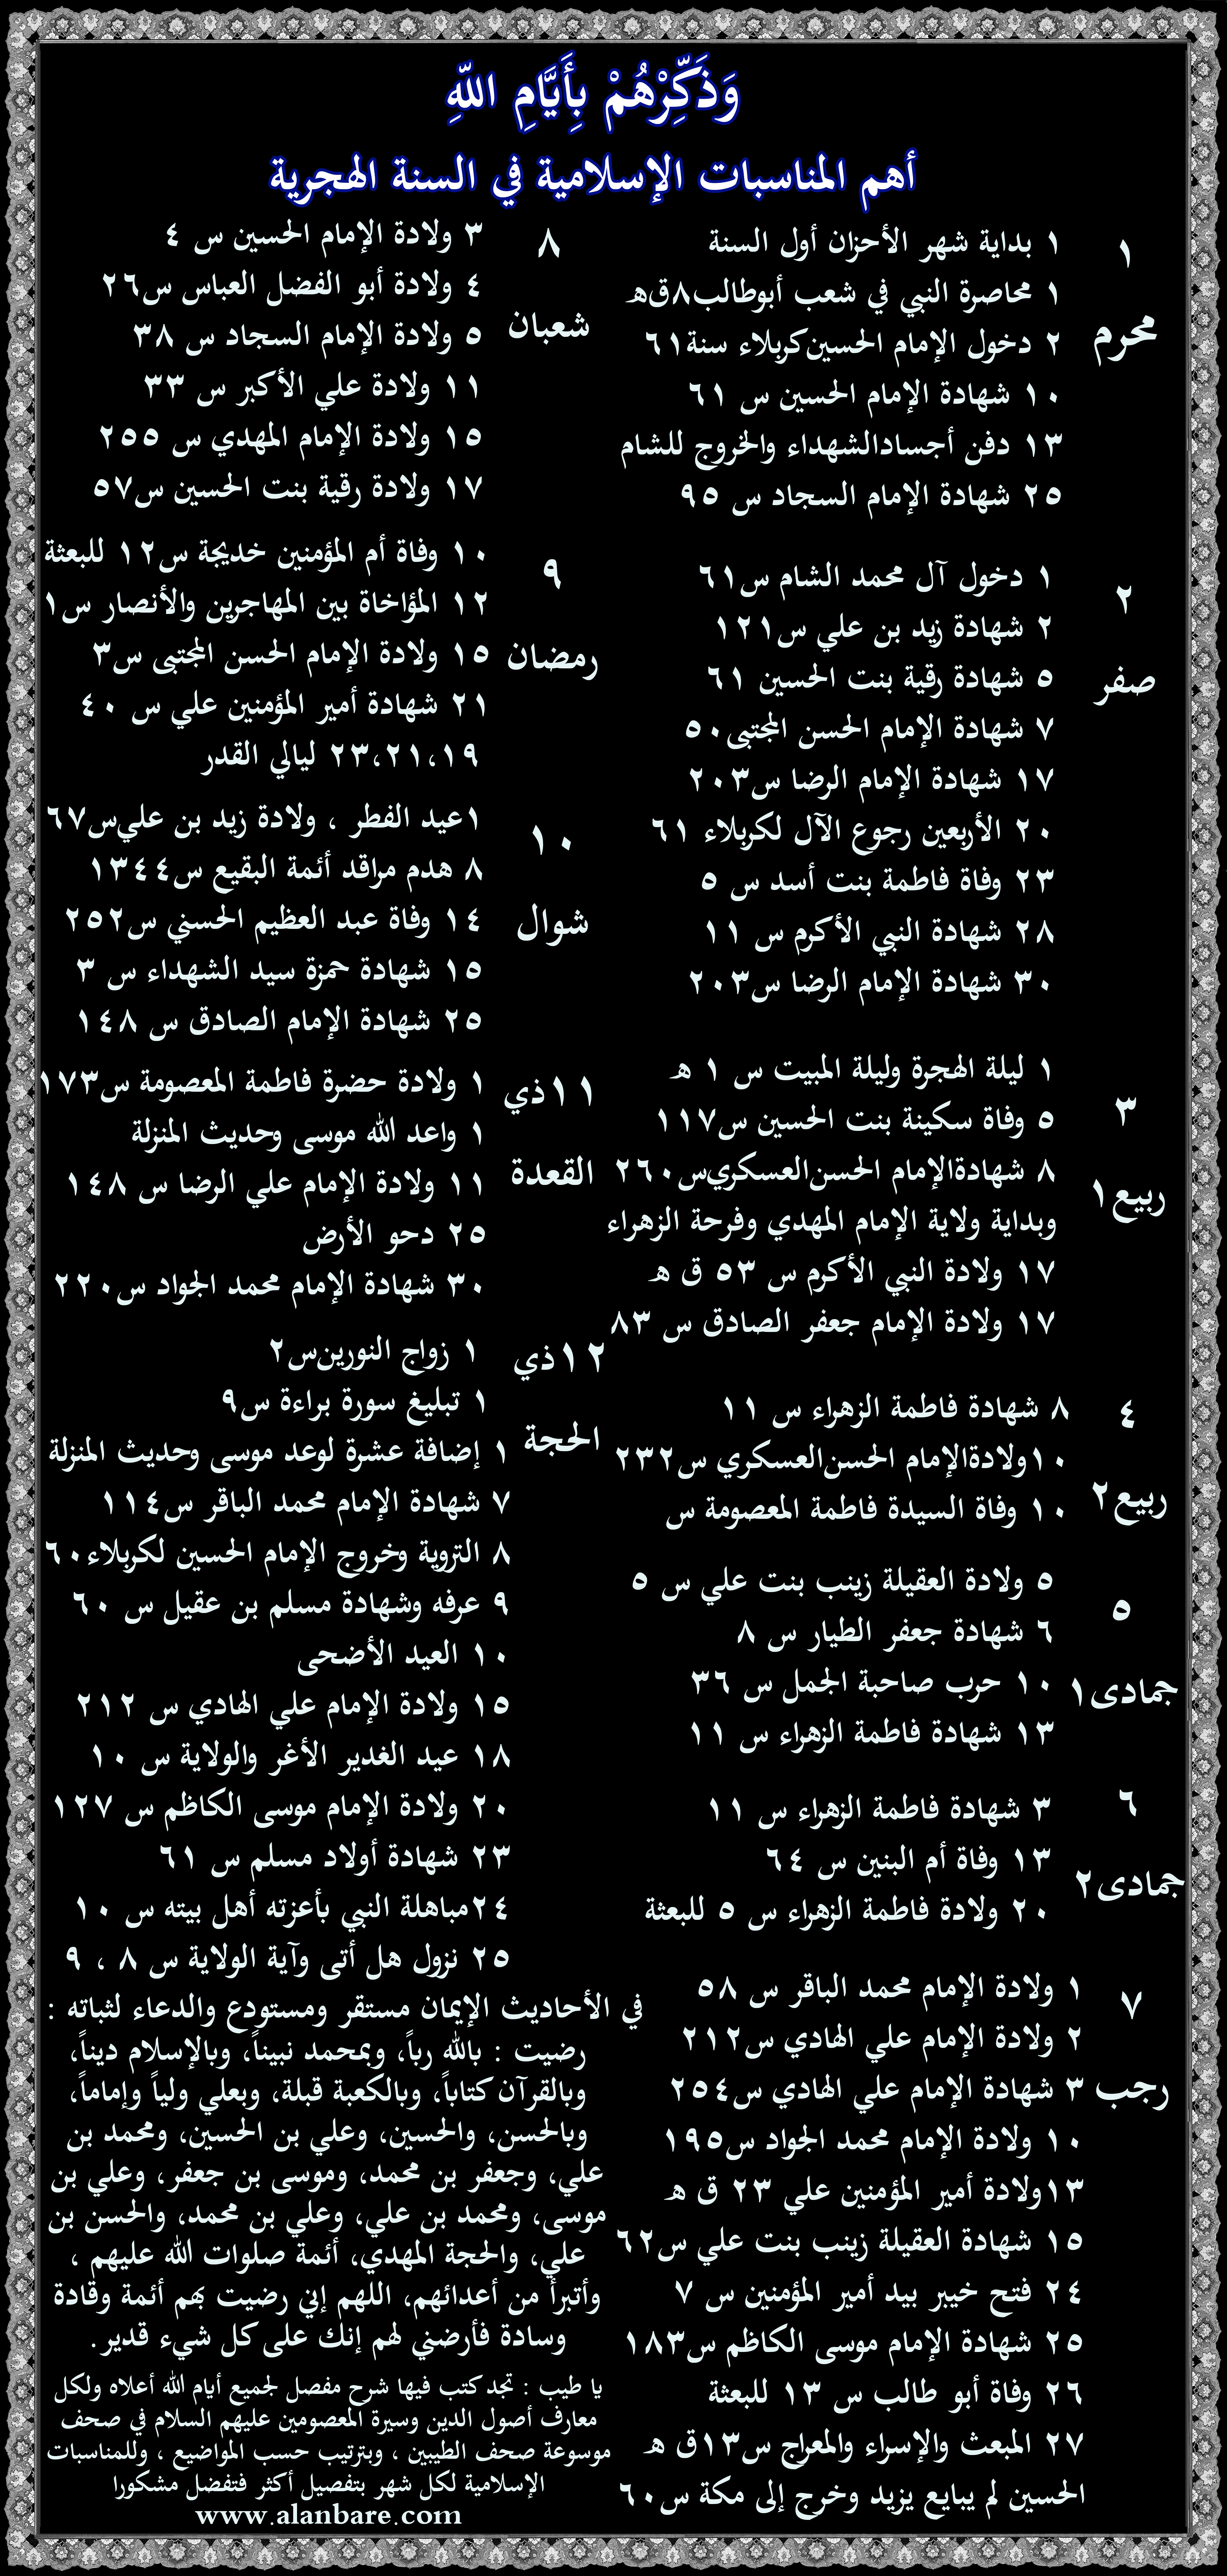 وَذَكِّرْهُمْ بِأَيَّامِ اللَّهِ
أهم المناسبات الإسلامية في السنة الهجرية
١
محرم
١ بداية شهر الأحزان أول السنة
١ محاصرة النبي في شعب أبوطالب٨ق‌ه
٢ دخول الإمام الحسين‌كربلاء سنة٦١
١٠ شهادة الإمام الحسين س ٦١
١٣ دفن أجسادالشهداء والخروج للشام
٢٥ شهادة الإمام السجاد س ٩٥
٢
صفر
١ دخول آل محمد الشام س٦١
٢ شهادة زيد بن علي س١٢١
٥ شهادة رقية بنت الحسين ٦١
٧ شهادة الإمام الحسن المجتبى٥٠
١٧ شهادة الإمام الرضا س٢٠٣
٢٠ الأربعين رجوع الآل لكربلاء ٦١
٢٣ وفاة فاطمة بنت أسد س ٥
٢٨ شهادة النبي الأكرم س ١١
٣٠ شهادة الإمام الرضا س٢٠٣
٣
ربيع١
١ ليلة الهجرة وليلة المبيت س ١ ه
٥ وفاة سكينة بنت الحسين س١١٧
٨ شهادةالإمام الحسن‌العسكري‌س٢٦٠
وبداية ولاية الإمام المهدي وفرحة الزهراء
١٧ ولادة النبي الأكرم س ٥٣ ق ه
١٧ ولادة الإمام جعفر الصادق س ٨٣
٤
ربيع٢
٨ شهادة فاطمة الزهراء س ١١
١٠ولادةالإمام الحسن‌العسكري س٢٣٢
١٠ وفاة السيدة فاطمة المعصومة س
٥
جمادى١
٥ ولادة العقيلة زينب بنت علي س ٥
٦ شهادة جعفر الطيار س ٨
١٠ حرب صاحبة الجمل س ٣٦
١٣ شهادة فاطمة الزهراء س ١١
٦
جمادى٢
٣ شهادة فاطمة الزهراء س ١١
١٣ وفاة أم البنين س ٦٤
٢٠ ولادة فاطمة الزهراء س ٥ للبعثة
٧
رجب
١ ولادة الإمام محمد الباقر س ٥٨
٢ ولادة الإمام علي الهادي س٢١٢
٣ شهادة الإمام علي الهادي س٢٥٤
١٠ ولادة الإمام محمد الجواد س١٩٥
١٣ولادة أمير المؤمنين علي ٢٣ ق ه
١٥ شهادة العقيلة زينب بنت علي س٦٢
٢٤ فتح خيبر بيد أمير المؤمنين س ٧
٢٥ شهادة الإمام موسى الكاظم س١٨٣
٢٦ وفاة أبو طالب س ١٣ للبعثة
٢٧ المبعث والإسراء والمعراج س١٣ق ه
الحسين لم يبايع يزيد وخرج إلى مكة س٦٠
٨
شعبان
٣ ولادة الإمام الحسين س ٤
٤ ولادة أبو الفضل العباس س٢٦
٥ ولادة الإمام السجاد س ٣٨
١١ ولادة علي الأكبر س ٣٣
١٥ ولادة الإمام المهدي س ٢٥٥
١٧ ولادة رقية بنت الحسين س٥٧
٩
رمضان
١٠ وفاة أم المؤمنين خديجة س١٢ للبعثة
١٢ المؤاخاة بين المهاجرين والأنصار س١
١٥ ولادة الإمام الحسن المجتبى س٣
٢١ شهادة أمير المؤمنين علي س ٤٠
١٩،٢١،٢٣ ليالي القدر
١٠
شوال
١عيد الفطر ، ولادة زيد بن علي‌س٦٧
٨ هدم مراقد أئمة البقيع س١٣٤٤
١٤ وفاة عبد العظيم الحسني س٢٥٢
١٥ شهادة حمزة سيد الشهداء س ٣
٢٥ شهادة الإمام الصادق س ١٤٨
١١ذي
القعدة
١ ولادة حضرة فاطمة المعصومة س١٧٣
١ واعد الله موسى وحديث المنزلة
١١ ولادة الإمام علي الرضا س ١٤٨
٢٥ دحو الأرض
٣٠ شهادة الإمام محمد الجواد س٢٢٠
١٢ذي
الحجة
١ زواج النورين‌س٢
١ تبليغ سورة براءة س٩
١ إضافة عشرة لوعد موسى وحديث المنزلة
٧ شهادة الإمام محمد الباقر س١١٤
٨ التروية وخروج الإمام الحسين لكربلاء٦٠
٩ عرفه وشهادة مسلم بن عقيل س ٦٠
١٠ العيد الأضحى
١٥ ولادة الإمام علي الهادي س ٢١٢
١٨ عيد الغدير الأغر والولاية س ١٠
٢٠ ولادة الإمام موسى الكاظم س ١٢٧
٢٣ شهادة أولاد مسلم س ٦١
٢٤مباهلة النبي بأعزته أهل بيته س ١٠
٢٥ نزول هل أتى وآية الولاية س ٨ ، ٩
في الأحاديث الإيمان مستقر ومستودع والدعاء لثباته :
رضيت : بالله رباً، وبمحمد نبيناً، وبالإسلام ديناً،
وبالقرآن كتاباً، وبالكعبة قبلة، وبعلي ولياً وإماماً،
وبالحسن، والحسين، وعلي بن الحسين، ومحمد بن
علي، وجعفر بن محمد، وموسى بن جعفر، وعلي بن
موسى، ومحمد بن علي، وعلي بن محمد، والحسن بن
علي، والحجة المهدي، أئمة صلوات الله عليهم ،
وأتبرأ من أعدائهم، اللهم إني رضيت بهم أئمة وقادة
وسادة فأرضني لهم إنك على كل شيء قدير.
يا طيب : تجد كتب فيها شرح مفصل لجميع أيام الله أعلاه ولكل
معارف أصول الدين وسيرة المعصومين عليهم السلام في صحف
موسوعة صحف الطيبين ، وبترتيب حسب المواضيع ، وللمناسبات
الإسلامية لكل شهر بتفصيل أكثر فتفضل مشكورا
www.alanbare.com